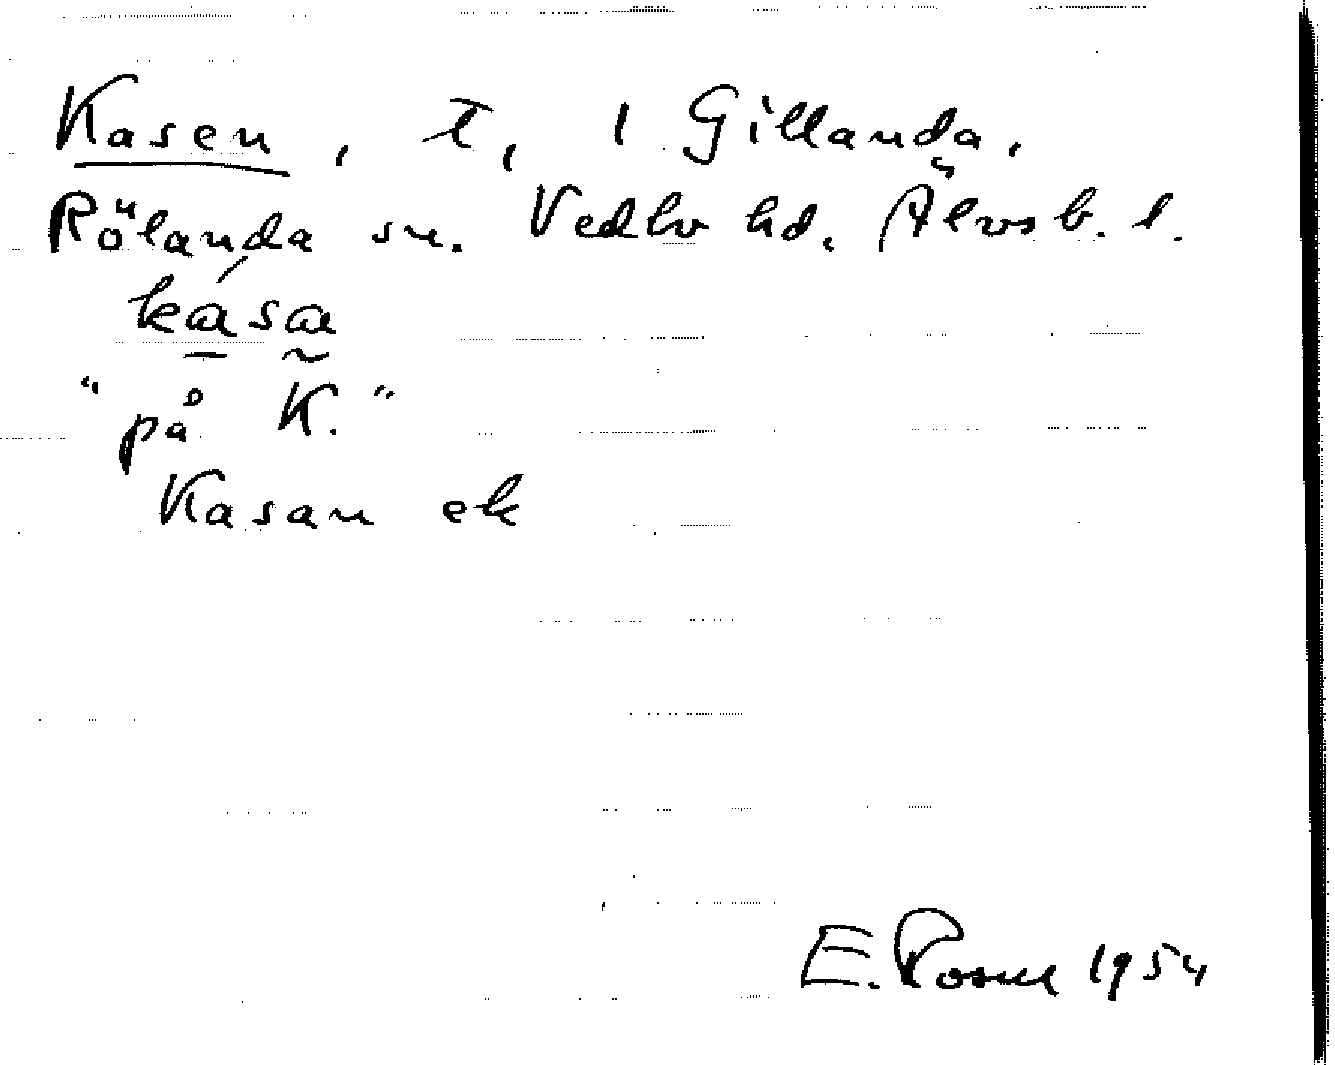 Kasen, t, 1 Gillanda,
Rölanda sn. Vedbo hd. Älvsb. l.
kása
"på K."
Kasan ek
E. Rosell 1954